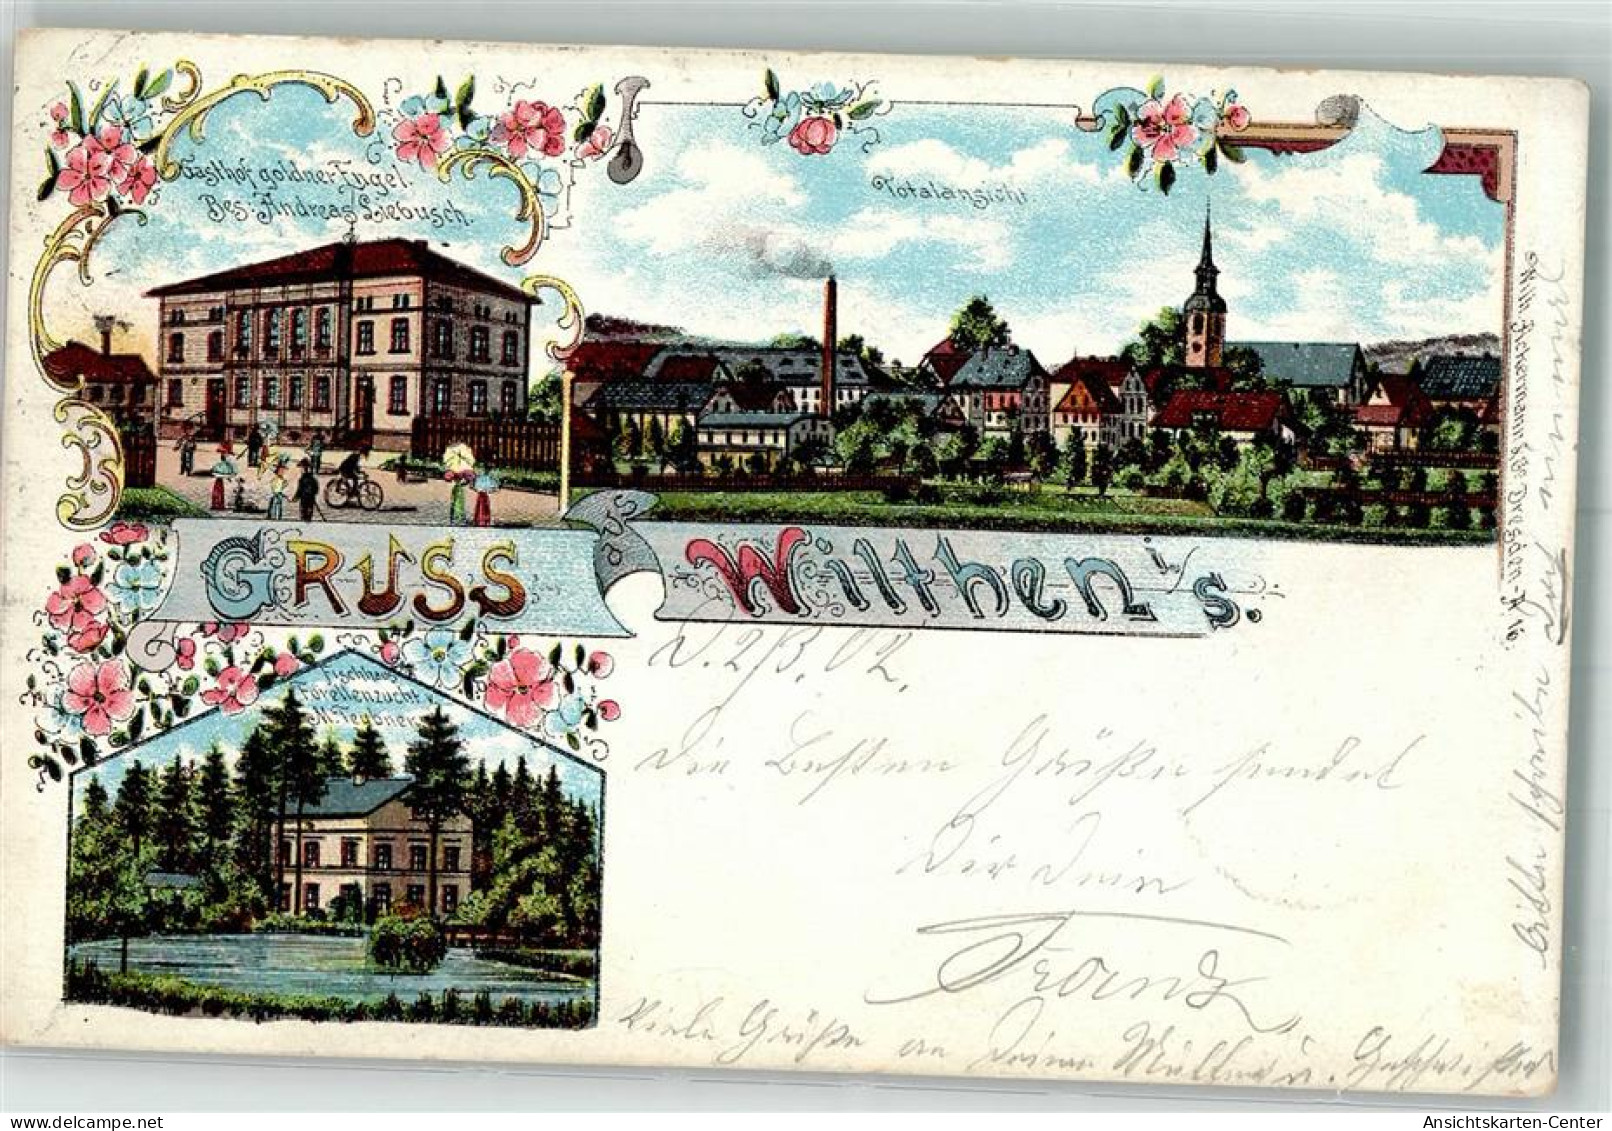 Gasthof goldner Engel.
Bes: Andreas Liebusch.
Totalansicht
GRUSS
aus
Wilthen i/s.
Fischhaus
Forellenzucht v.
M. Teubner.
Wilh. Ackermann & Co Dresden A 16.
d. 2/3. 02.
Die besten Grüße sendet
Dir Dein
Franz
Viele Grüße an Deine Mutter u. Geschwister
Bitte schreibe
Ansichtskarten-Center